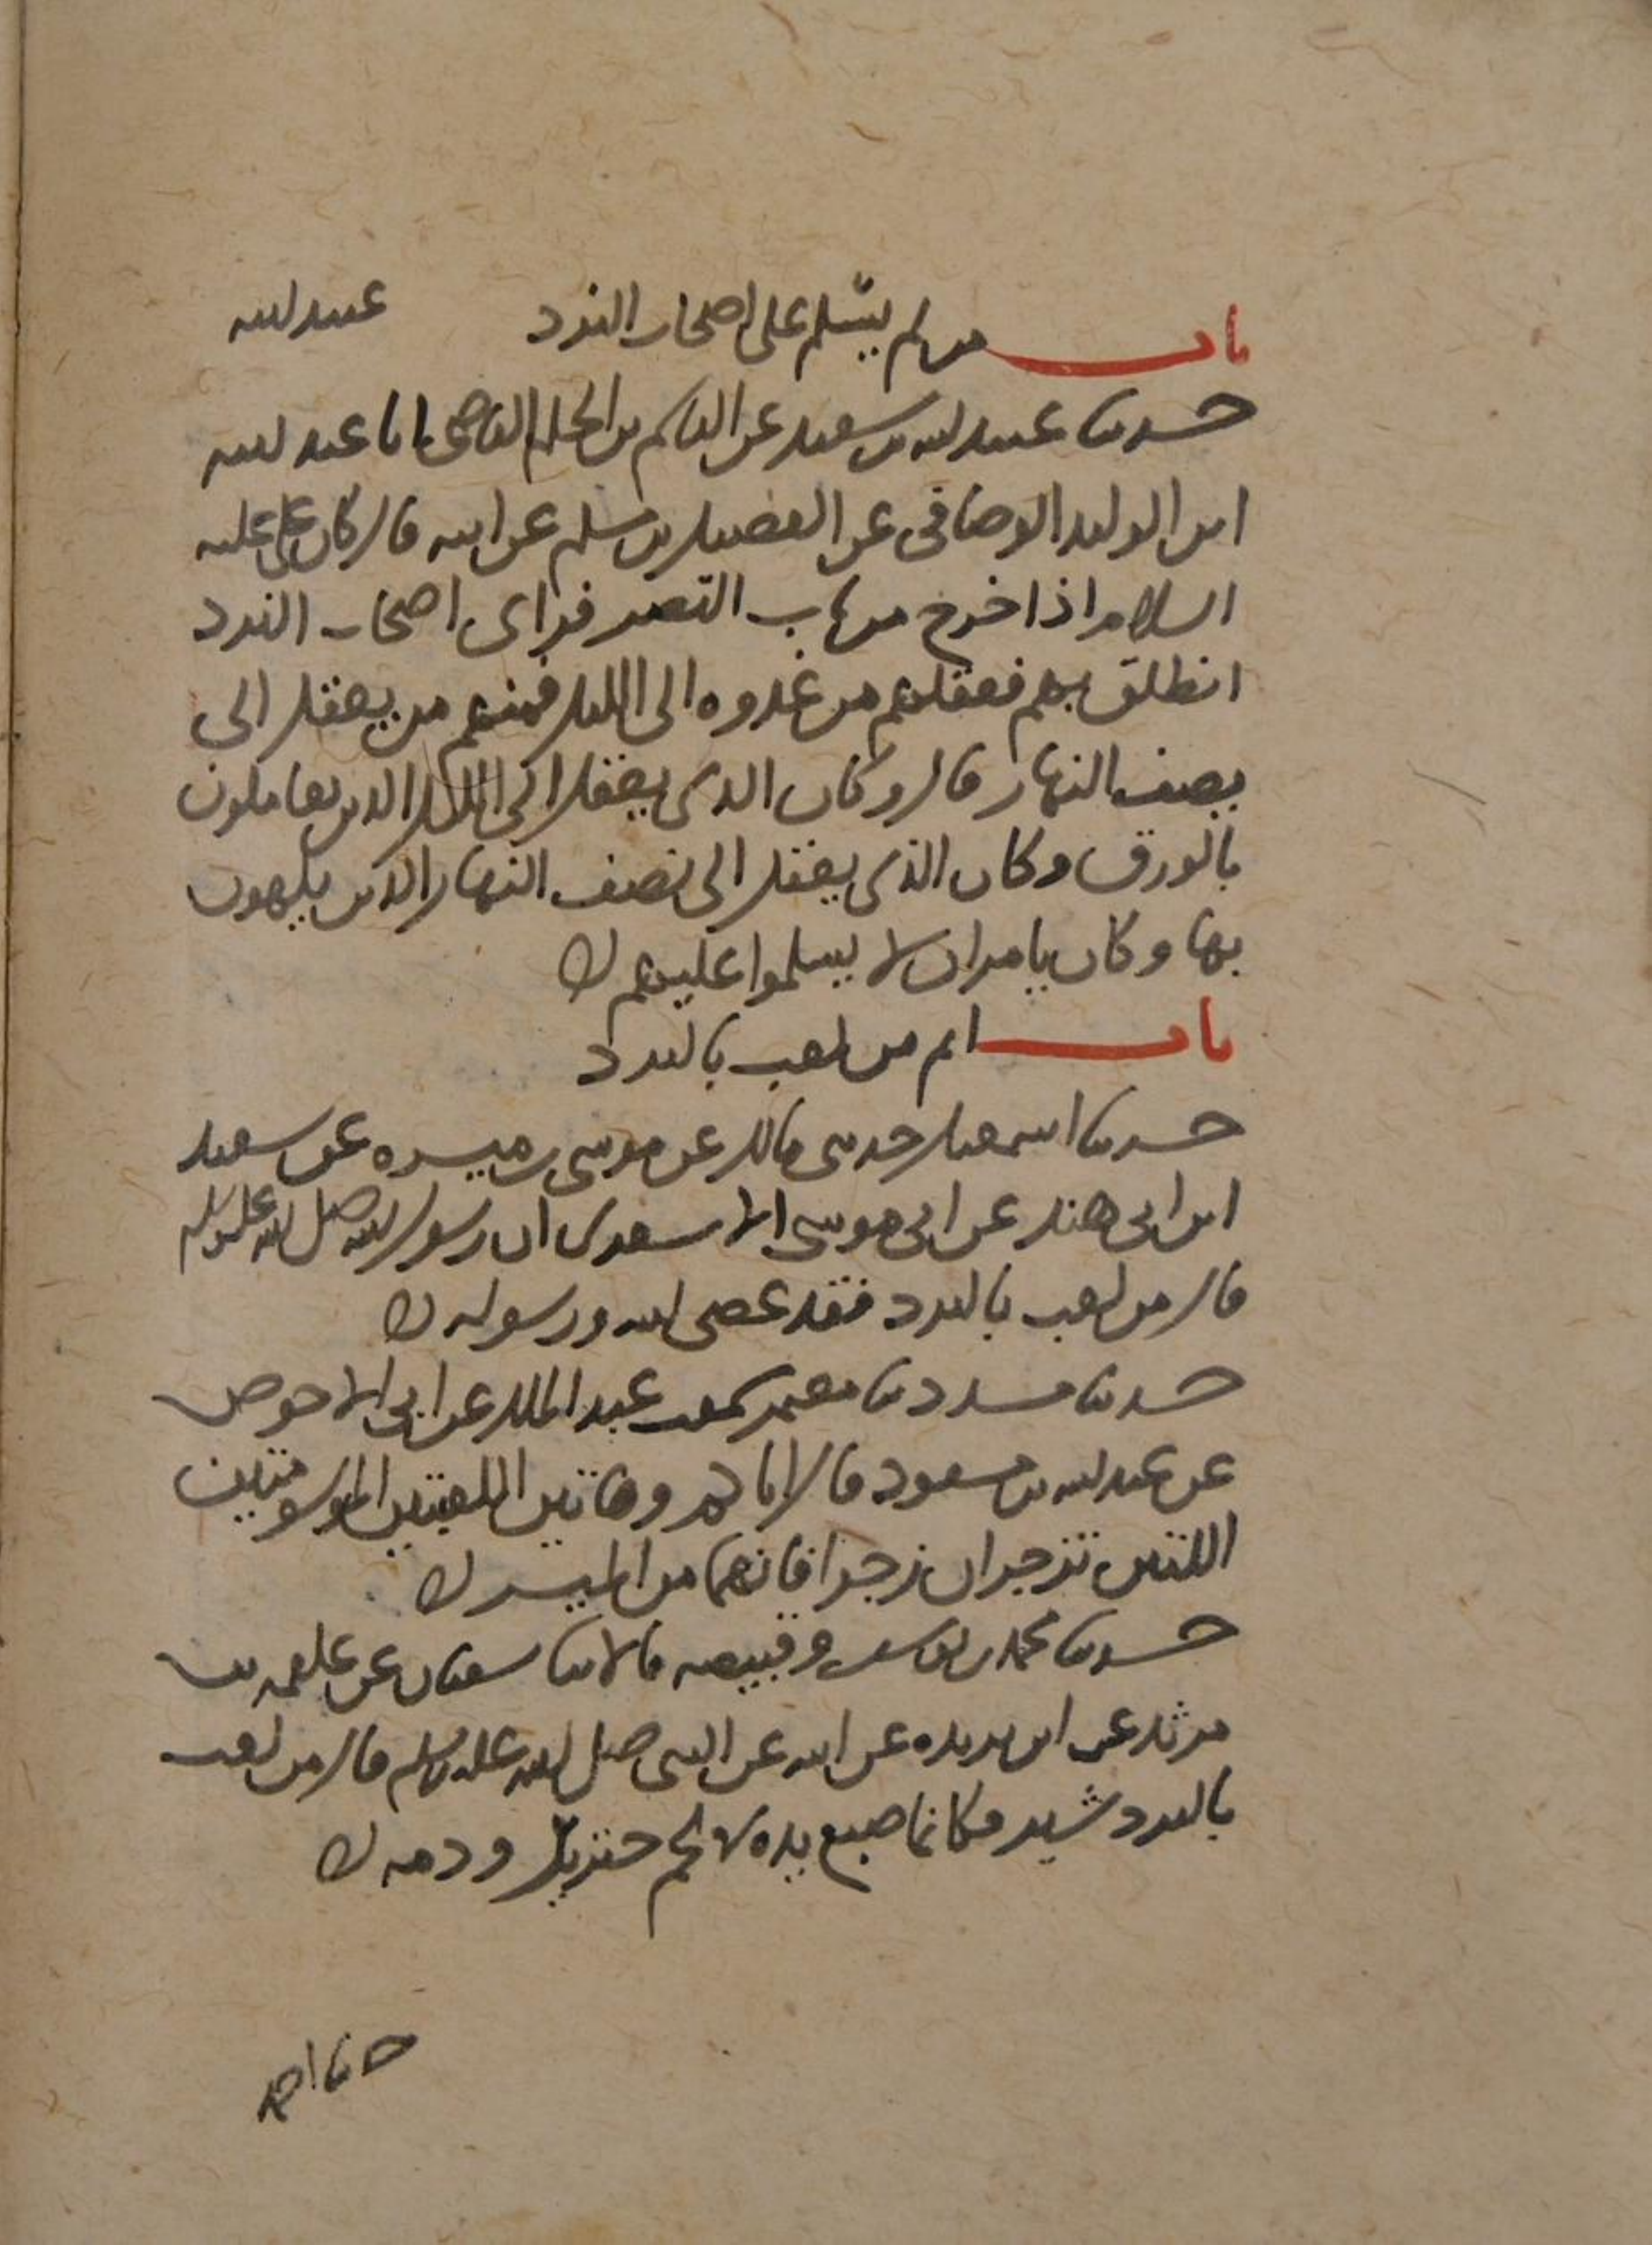 باب من لم يسلم على اصحاب النرد عبيد الله
حدثنا عبيد الله بن سعيد عن القاسم بن الحكم القاضي انا عبيد الله
ابن الوليد الوصافي عن الفضيل بن مسلم عن ابيه قال كان علي عليه
السلام اذا خرج من باب القصر فراى اصحاب النرد
انطلق بهم فعقلهم من غدوه الى الليل فمنهم من يعقل الى
نصف النهار قال وكان الذي يعقل الى الليل الذين يعاملون
بالورق وكان الذي يعقل الى نصف النهار الذين يلهون
بها وكان يامر ان لا يسلموا عليهم
باب اثم من لعب بالنرد
حدثنا اسمعيل حدثني مالك عن موسى بن ميسره عن سعيد
ابن ابي هند عن ابي موسى الاشعري ان رسول الله صلى الله عليه وسلم
قال من لعب بالنرد فقد عصى الله ورسوله
حدثنا مسدد ثنا معتمر سمعت عبد الملك عن ابي الاحوص
عن عبد الله بن مسعود قال اياكم وهاتين اللعبتين الموسومتين
اللتين تزجران زجرا فانهما من الميسر
حدثنا محمد بن يوسف وقبيصه قالا ثنا سفيان عن علقمه بن
مرثد عن ابن بريده عن ابيه عن النبي صلى الله عليه وسلم قال من لعب
بالنرد شير فكانما صبغ يده في لحم خنزير ودمه
حدثنا احمد